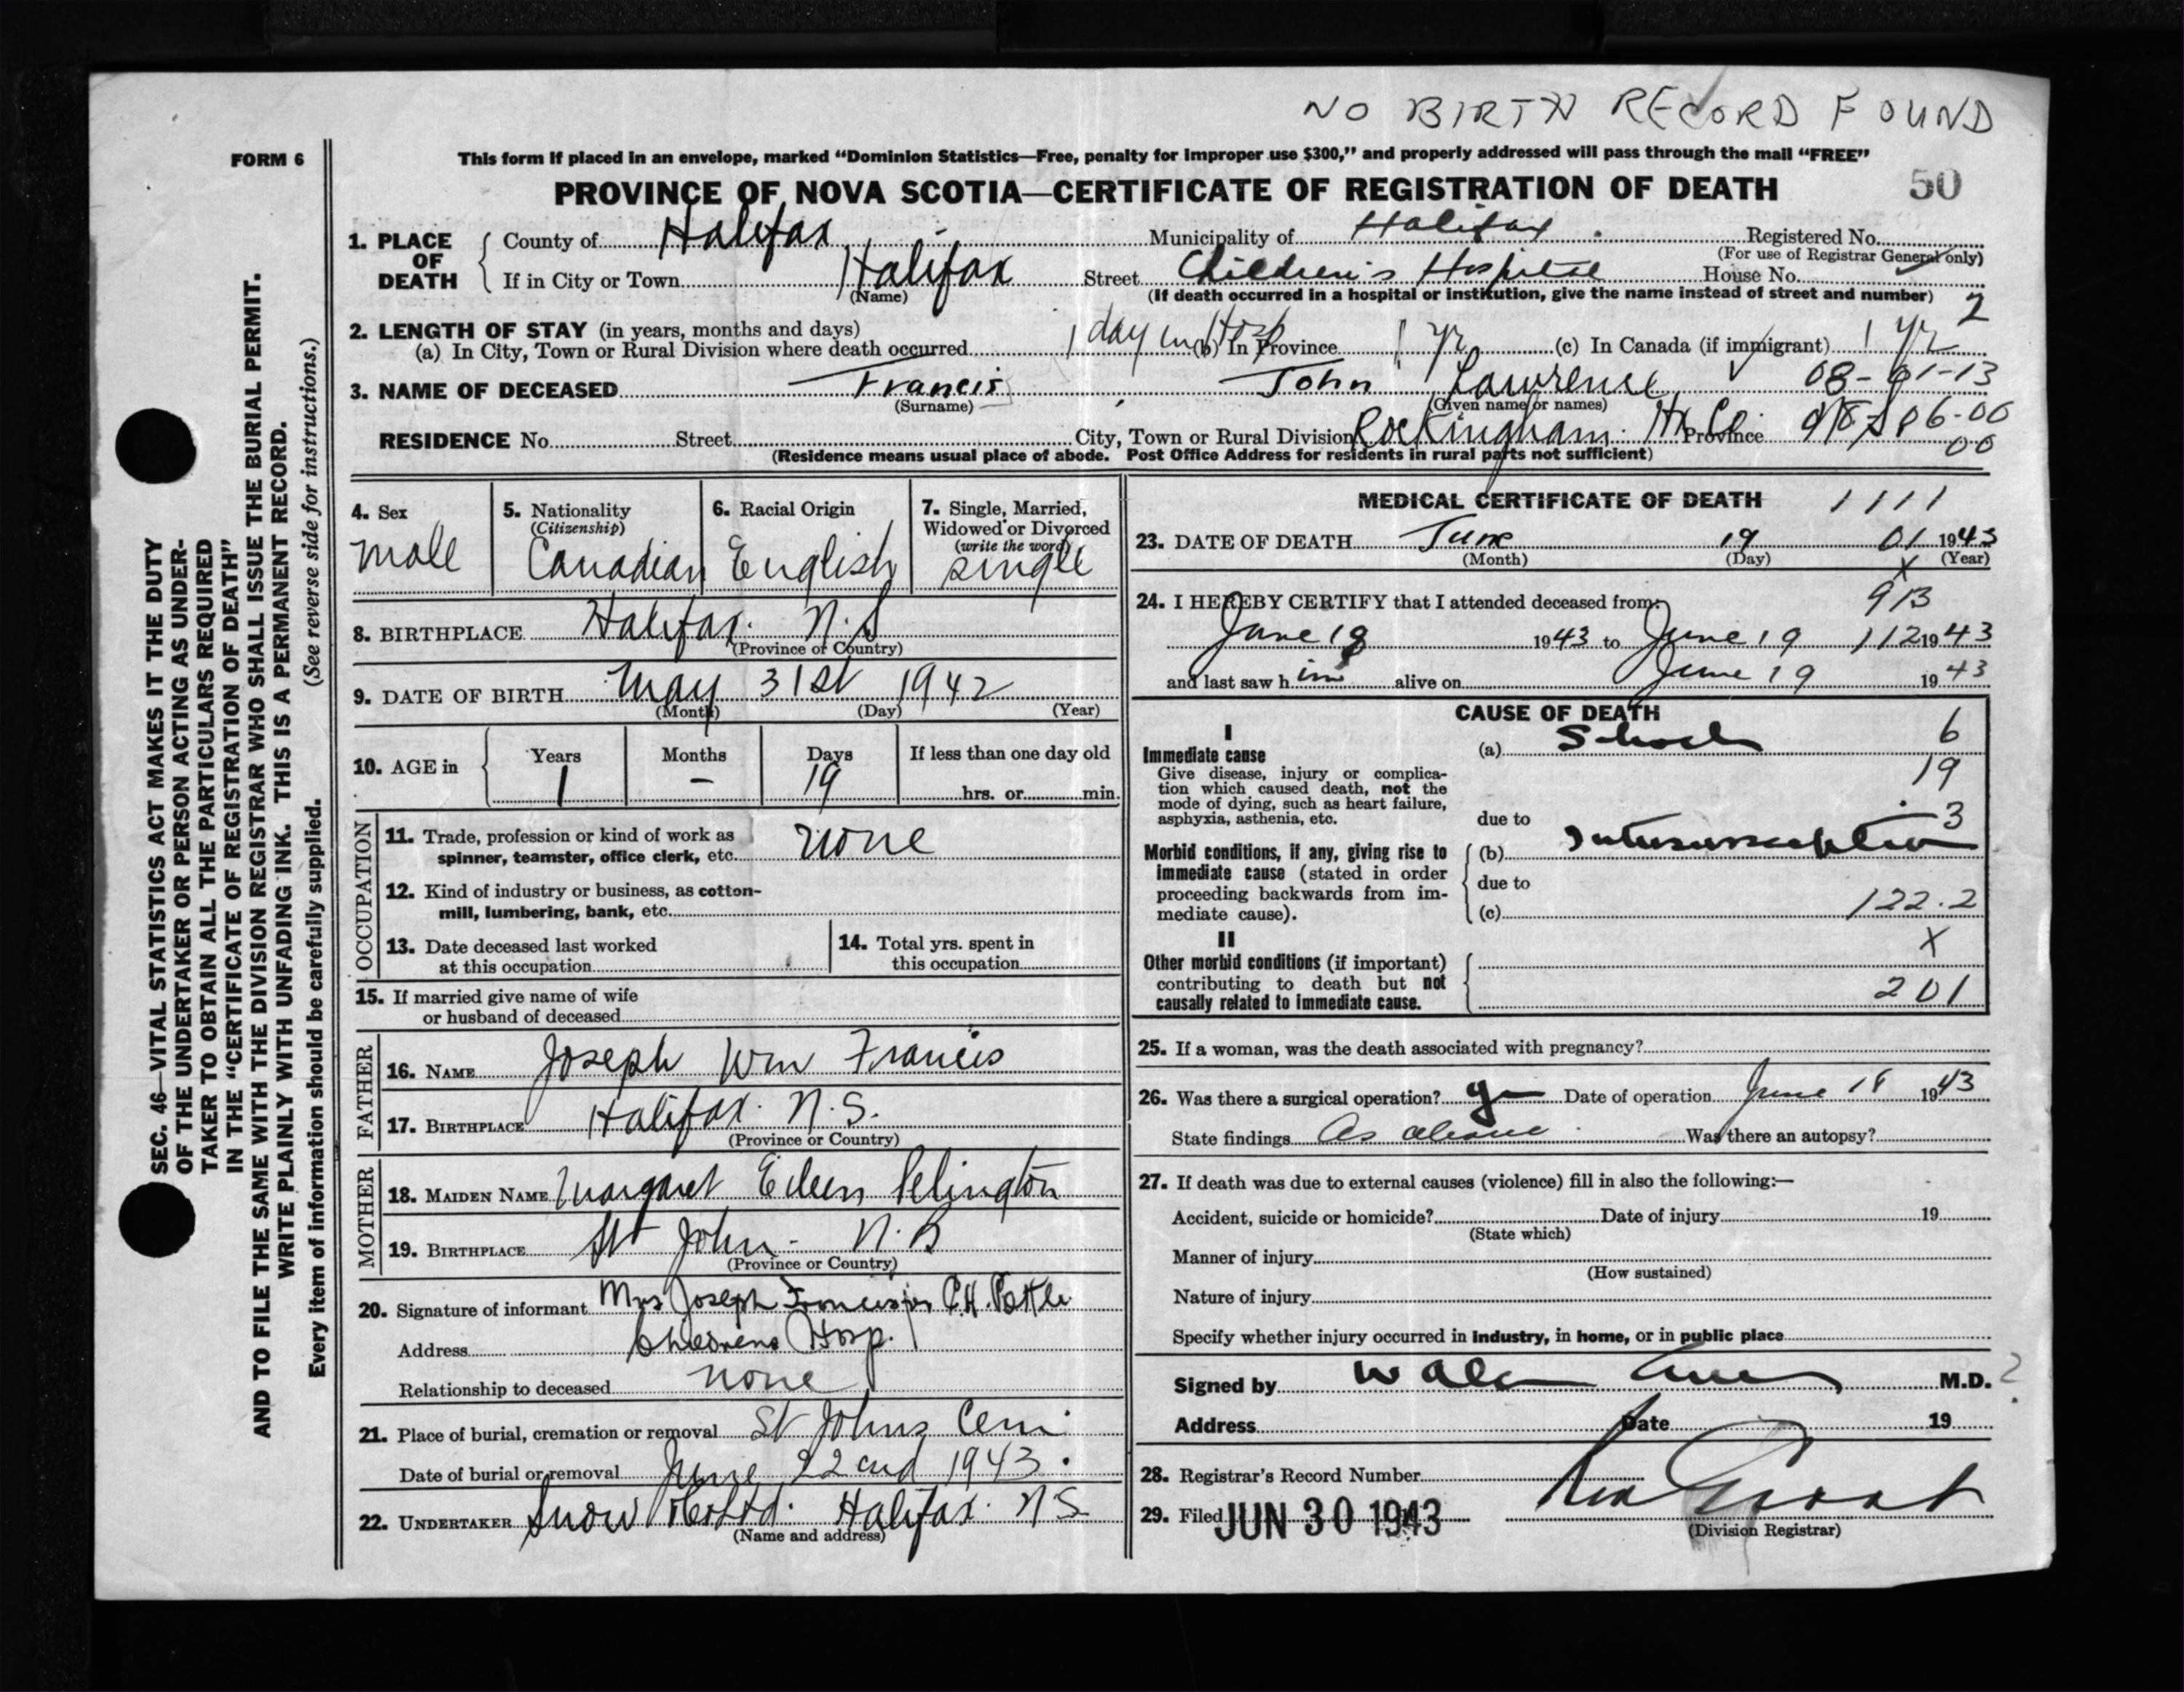 NO BIRTH RECORD FOUND
FORM 6
This form if placed in an envelope, marked "Dominion Statistics—Free, penalty for improper use $300," and properly addressed will pass through the mail "FREE"
PROVINCE OF NOVA SCOTIA—CERTIFICATE OF REGISTRATION OF DEATH 50
1. PLACE OF DEATH
County of Halifax Municipality of Halifax Registered No.
(For use of Registrar General only)
If in City or Town Halifax Street Children's Hospital House No.
(Name) (If death occurred in a hospital or institution, give the name instead of street and number) 2
2. LENGTH OF STAY (in years, months and days)
(a) In City, Town or Rural Division where death occurred 1 day in Hosp (b) In Province 1 yr (c) In Canada (if immigrant) 1 yr
3. NAME OF DECEASED Francis John Lawrence 08-01-13
(Surname) (Given name or names)
RESIDENCE No. Street City, Town or Rural Division Rockingham Hx Co. Province 06-00
00
(Residence means usual place of abode. Post Office Address for residents in rural parts not sufficient)
4. Sex
male
5. Nationality
(Citizenship)
Canadian
6. Racial Origin
English
7. Single, Married,
Widowed or Divorced
(write the word)
single
8. BIRTHPLACE Halifax. N.S
(Province or Country)
9. DATE OF BIRTH May 31st 1942
(Month) (Day) (Year)
10. AGE in
Years Months Days If less than one day old
1 — 19 hrs. or min.
OCCUPATION
11. Trade, profession or kind of work as
spinner, teamster, office clerk, etc. none
12. Kind of industry or business, as cotton-
mill, lumbering, bank, etc.
13. Date deceased last worked
at this occupation
14. Total yrs. spent in
this occupation
15. If married give name of wife
or husband of deceased
FATHER
16. NAME Joseph Wm Francis
17. BIRTHPLACE Halifax. N.S.
(Province or Country)
MOTHER
18. MAIDEN NAME Margaret Eileen Pelington
19. BIRTHPLACE St John - N.B
(Province or Country)
20. Signature of informant Mrs Joseph Francis per
Address Childrens Hosp.
Relationship to deceased none
21. Place of burial, cremation or removal St Johns Cem.
Date of burial or removal June 22nd 1943.
22. UNDERTAKER Snow & Co Ltd. Halifax. N S
(Name and address)
MEDICAL CERTIFICATE OF DEATH 1111
23. DATE OF DEATH June 19 01 1943
(Month) (Day) (Year)
X
24. I HEREBY CERTIFY that I attended deceased from: 913
June 18 1943 to June 19 112 1943
and last saw him alive on June 19 1943
CAUSE OF DEATH
I
Immediate cause
Give disease, injury or complica-
tion which caused death, not the
mode of dying, such as heart failure,
asphyxia, asthenia, etc.
(a) Shock 6
19
due to 3
Morbid conditions, if any, giving rise to
immediate cause (stated in order
proceeding backwards from im-
mediate cause).
(b) Intussusception
due to
(c) 122.2
II
Other morbid conditions (if important)
contributing to death but not
causally related to immediate cause.
X
201
25. If a woman, was the death associated with pregnancy?
26. Was there a surgical operation? yes Date of operation June 18 1943
State findings As above Was there an autopsy?
27. If death was due to external causes (violence) fill in also the following:—
Accident, suicide or homicide? Date of injury 19
(State which)
Manner of injury
(How sustained)
Nature of injury
Specify whether injury occurred in industry, in home, or in public place
Signed by M.D. ?
Address Date 19
28. Registrar's Record Number
29. Filed JUN 30 1943
(Division Registrar)
SEC. 46—VITAL STATISTICS ACT MAKES IT THE DUTY
OF THE UNDERTAKER OR PERSON ACTING AS UNDER-
TAKER TO OBTAIN ALL THE PARTICULARS REQUIRED
IN THE "CERTIFICATE OF REGISTRATION OF DEATH"
AND TO FILE THE SAME WITH THE DIVISION REGISTRAR WHO SHALL ISSUE THE BURIAL PERMIT.
WRITE PLAINLY WITH UNFADING INK. THIS IS A PERMANENT RECORD.
Every item of information should be carefully supplied. (See reverse side for instructions.)